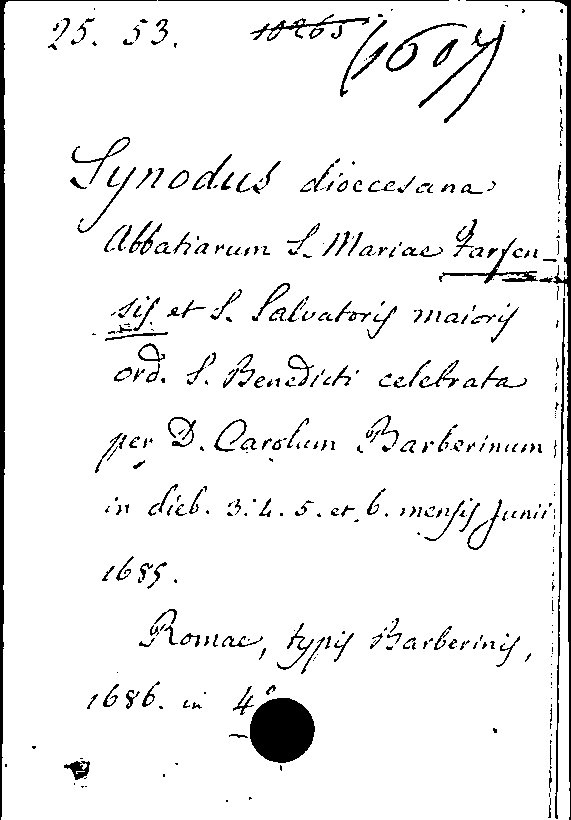 25. 53. 10265 (1607)
Synodus dioecesana
Abbatiarum S. Mariae Farfen-
sis et S. Salvatoris maioris
ord. S. Benedicti celebrata
per D. Carolum Barberinum
in dieb. 3. 4. 5. et 6. mensis Junii
1685.
Romae, typis Barberinis,
1686. in 4º